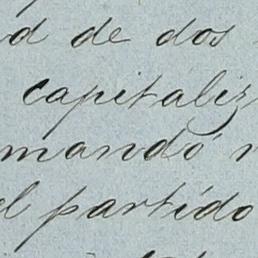 d de dos
capitaliz
mandó
el partido